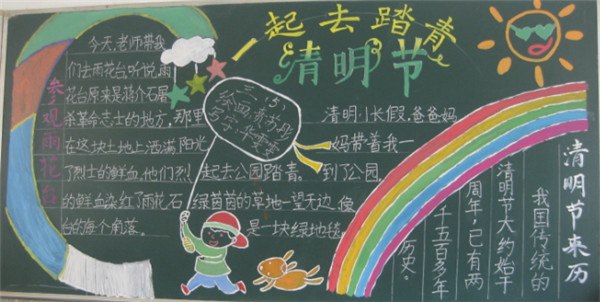 一起去踏青
清明节
参观雨花台
今天,老师带我
们去雨花台,听说,雨
花台原来是蒋介石屠
杀革命志士的地方,那里
在这块土地上洒满阳光
了烈士的鲜血,他们烈
的鲜血染红了雨花石
台的每个角落。
三(5)
绘画:
写字:
清明小长假,爸爸妈
妈带着我一
起去公园踏青。到了公园,
绿茵茵的草地一望无边,像
是一块绿地毯。
清明节来历
我国传统的
清明节大约始于
周年,已有两
千五百多年
历史。